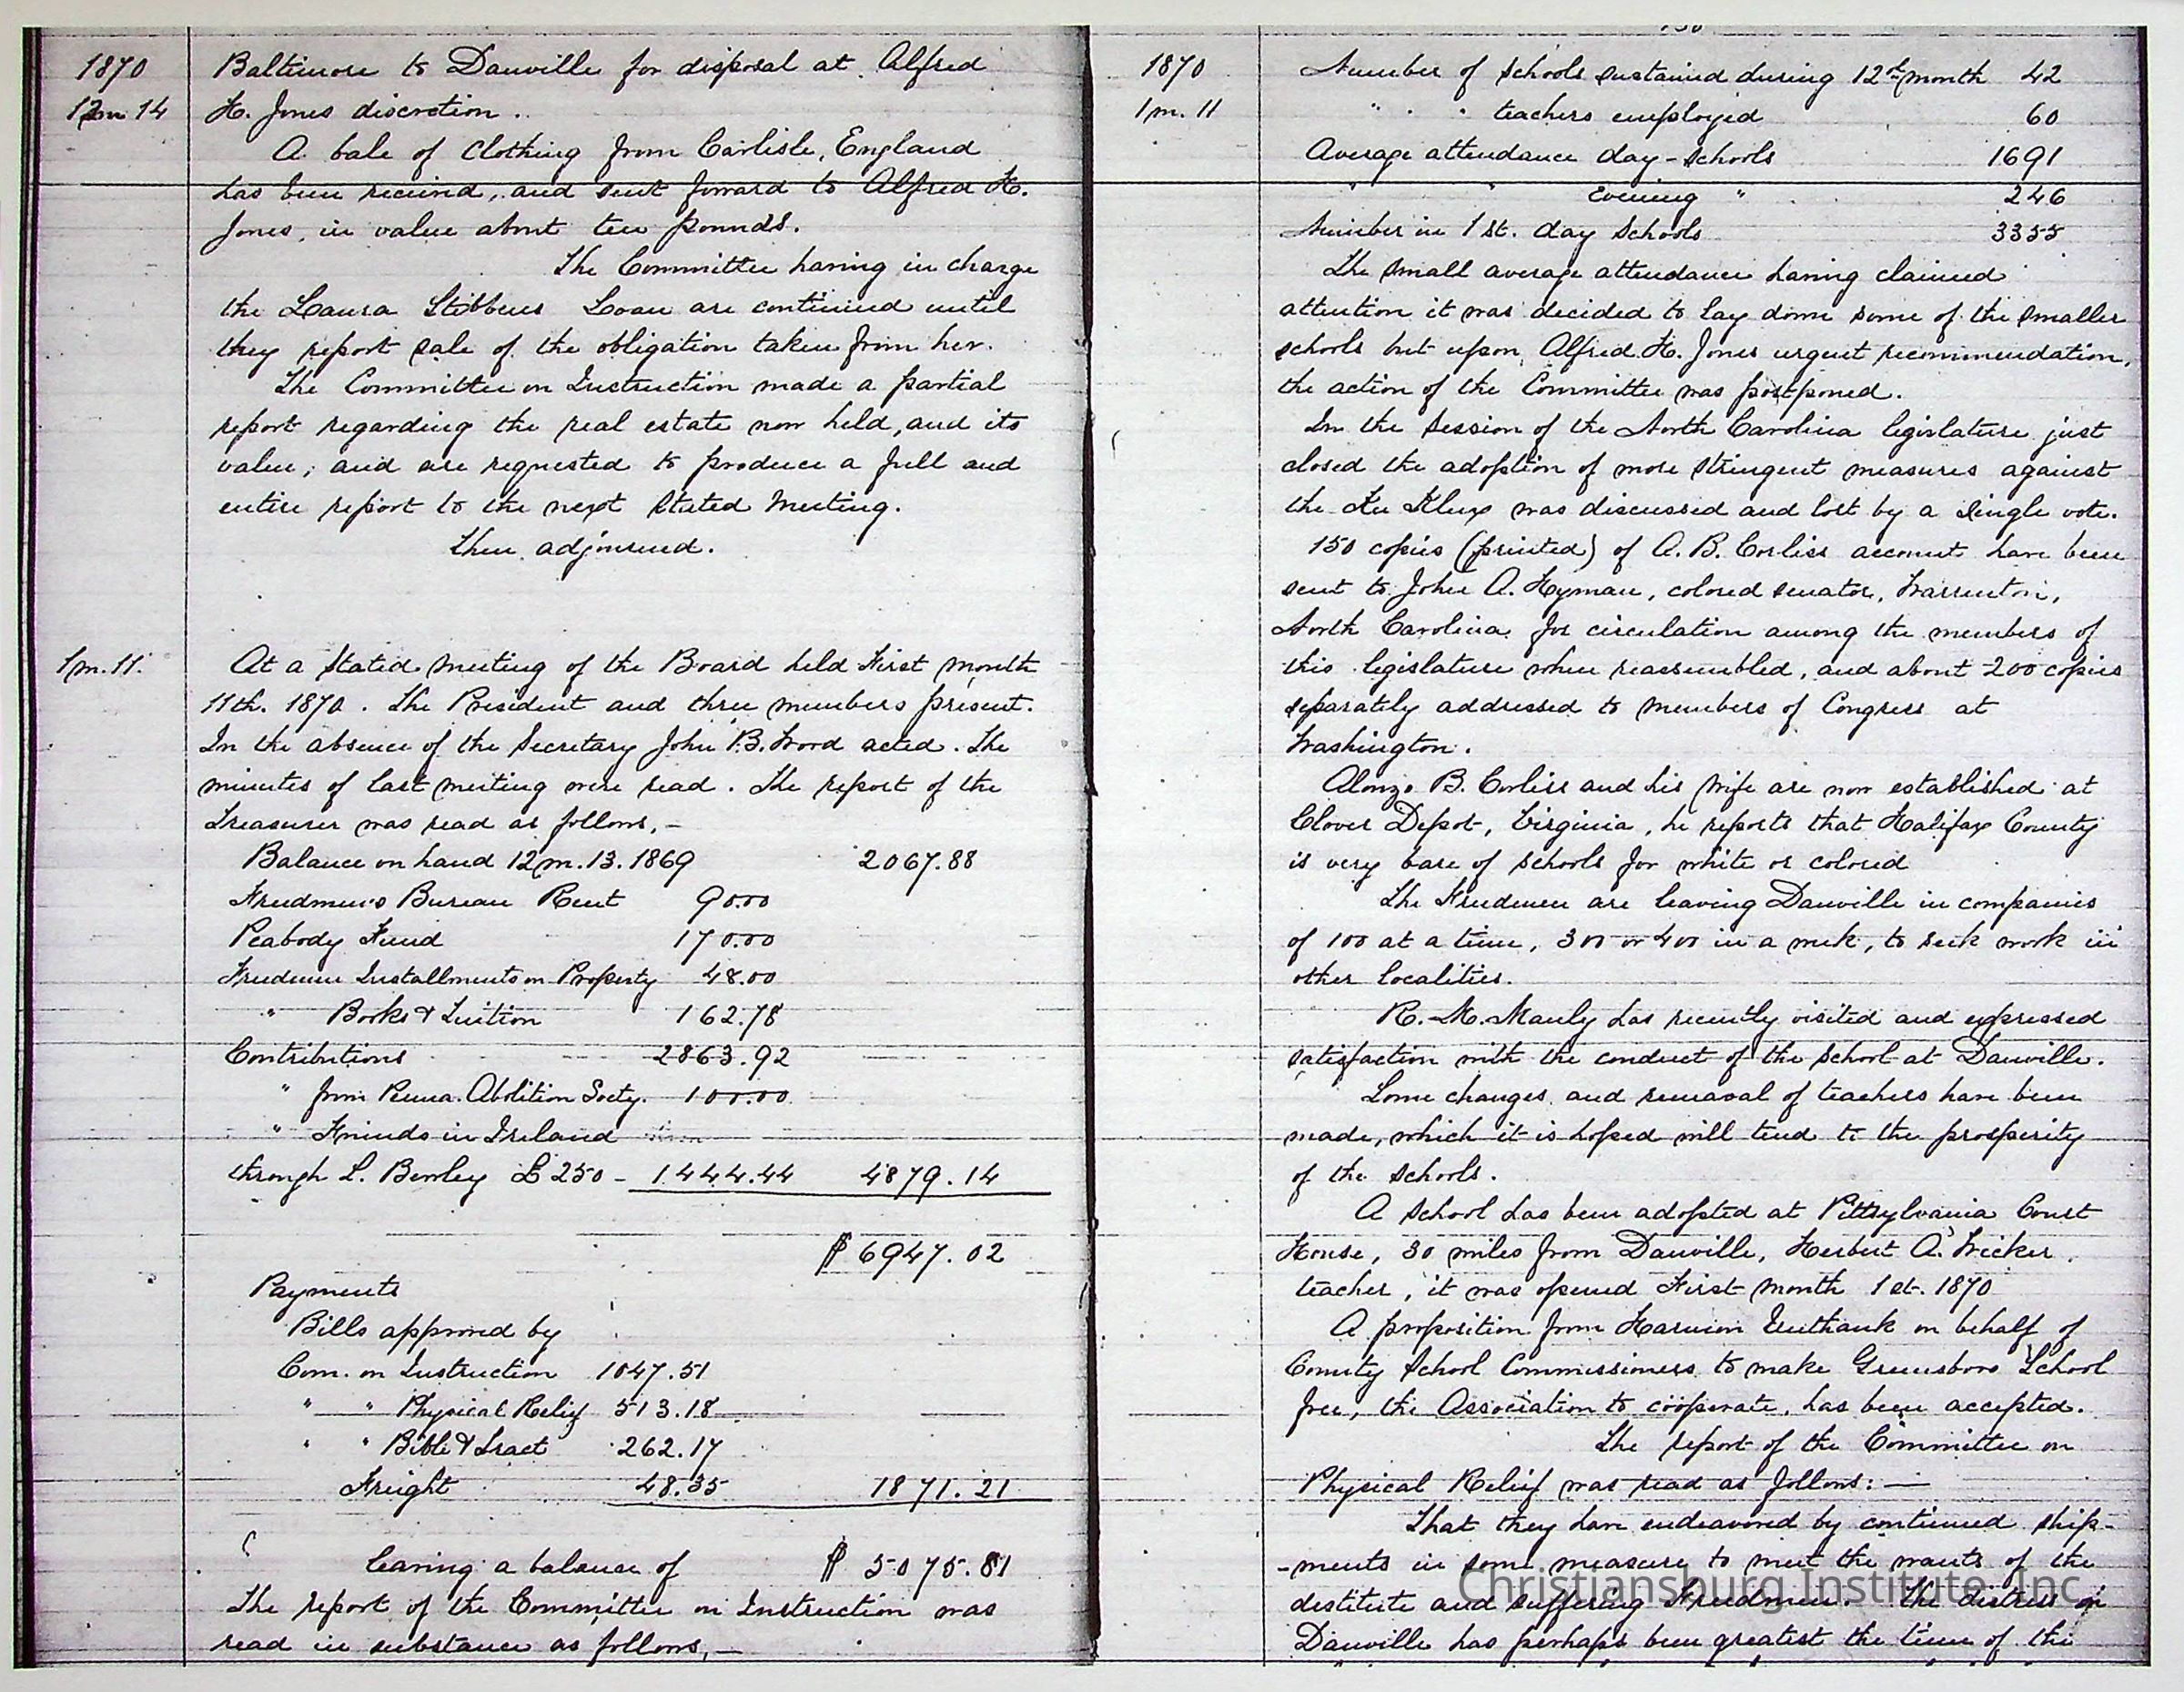 1870
12m 14
Baltimore to Danville for disposal at Alfred
H. Jones discretion.
A bale of Clothing from Carlisle, England
has been received, and sent forward to Alfred H.
Jones, in value about ten pounds.
The Committee having in charge
the Laura Stebbens Loan are continued until
they report sale of the obligation taken from her.
The Committee on Instruction made a partial
report regarding the real estate now held, and its
value; and are requested to produce a full and
entire report to the next Stated Meeting.
Then adjourned.
1m. 11.
At a Stated meeting of the Board held First month
11th. 1870. The President and three members present.
In the absence of the Secretary John B. Wood acted. The
minutes of last meeting were read. The report of the
Treasurer was read as follows,—
Balance on hand 12m. 13. 1869 2067.88
Freedmen's Bureau Rent 90.00
Peabody Fund 170.00
Freedmen Installments on Property 48.00
" Books & Tuition 162.78
Contributions 2863.92
" from Penna. Abolition Socty. 100.00
" Friends in Ireland
through L. Bewley £250 - 1444.44 4879.14
$6947.02
Payments
Bills approved by
Com. on Instruction 1047.51
" " Physical Relief 513.18
" " Bible & Tract 262.17
Freight 48.35 1871.21
leaving a balance of $5075.81
The report of the Committee on Instruction was
read in substance as follows,—
1870
1m. 11
Number of Schools sustained during 12th month 42
" " teachers employed 60
Average attendance day-schools 1691
" " Evening " 246
Number in 1st. day Schools 3355
The small average attendance having claimed
attention it was decided to lay down some of the smaller
schools but upon Alfred H. Jones urgent recommendation,
the action of the Committee was postponed.
In the Session of the North Carolina legislature just
closed the adoption of more stringent measures against
the Ku Klux was discussed and lost by a single vote.
150 copies (printed) of A. B. Corliss account have been
sent to John A. Hyman, colored senator, Warrenton,
North Carolina for circulation among the members of
this legislature when reassembled, and about 200 copies
separately addressed to members of Congress at
Washington.
Alonzo B. Corliss and his wife are now established at
Clover Depot, Virginia, he reports that Halifax County
is very bare of schools for white or colored
The Freedmen are leaving Danville in companies
of 100 at a time, 300 or 400 in a week, to seek work in
other localities.
R. M. Manly has recently visited and expressed
satisfaction with the conduct of the school at Danville.
Some changes and removal of teachers have been
made, which it is hoped will tend to the prosperity
of the schools.
A school has been adopted at Pittsylvania Court
House, 30 miles from Danville, Herbert A. Wicker
teacher, it was opened First month 1st. 1870
A proposition from Harmon Unthank on behalf of
County School Commissioners to make Greensboro School
free, the Association to coöperate, has been accepted.
The report of the Committee on
Physical Relief was read as follows: —
That they have endeavored by continued ship-
-ments in some measure to meet the wants of the
destitute and suffering Freedmen. The distress in
Danville has perhaps been greatest the time of the
Christiansburg Institute, Inc